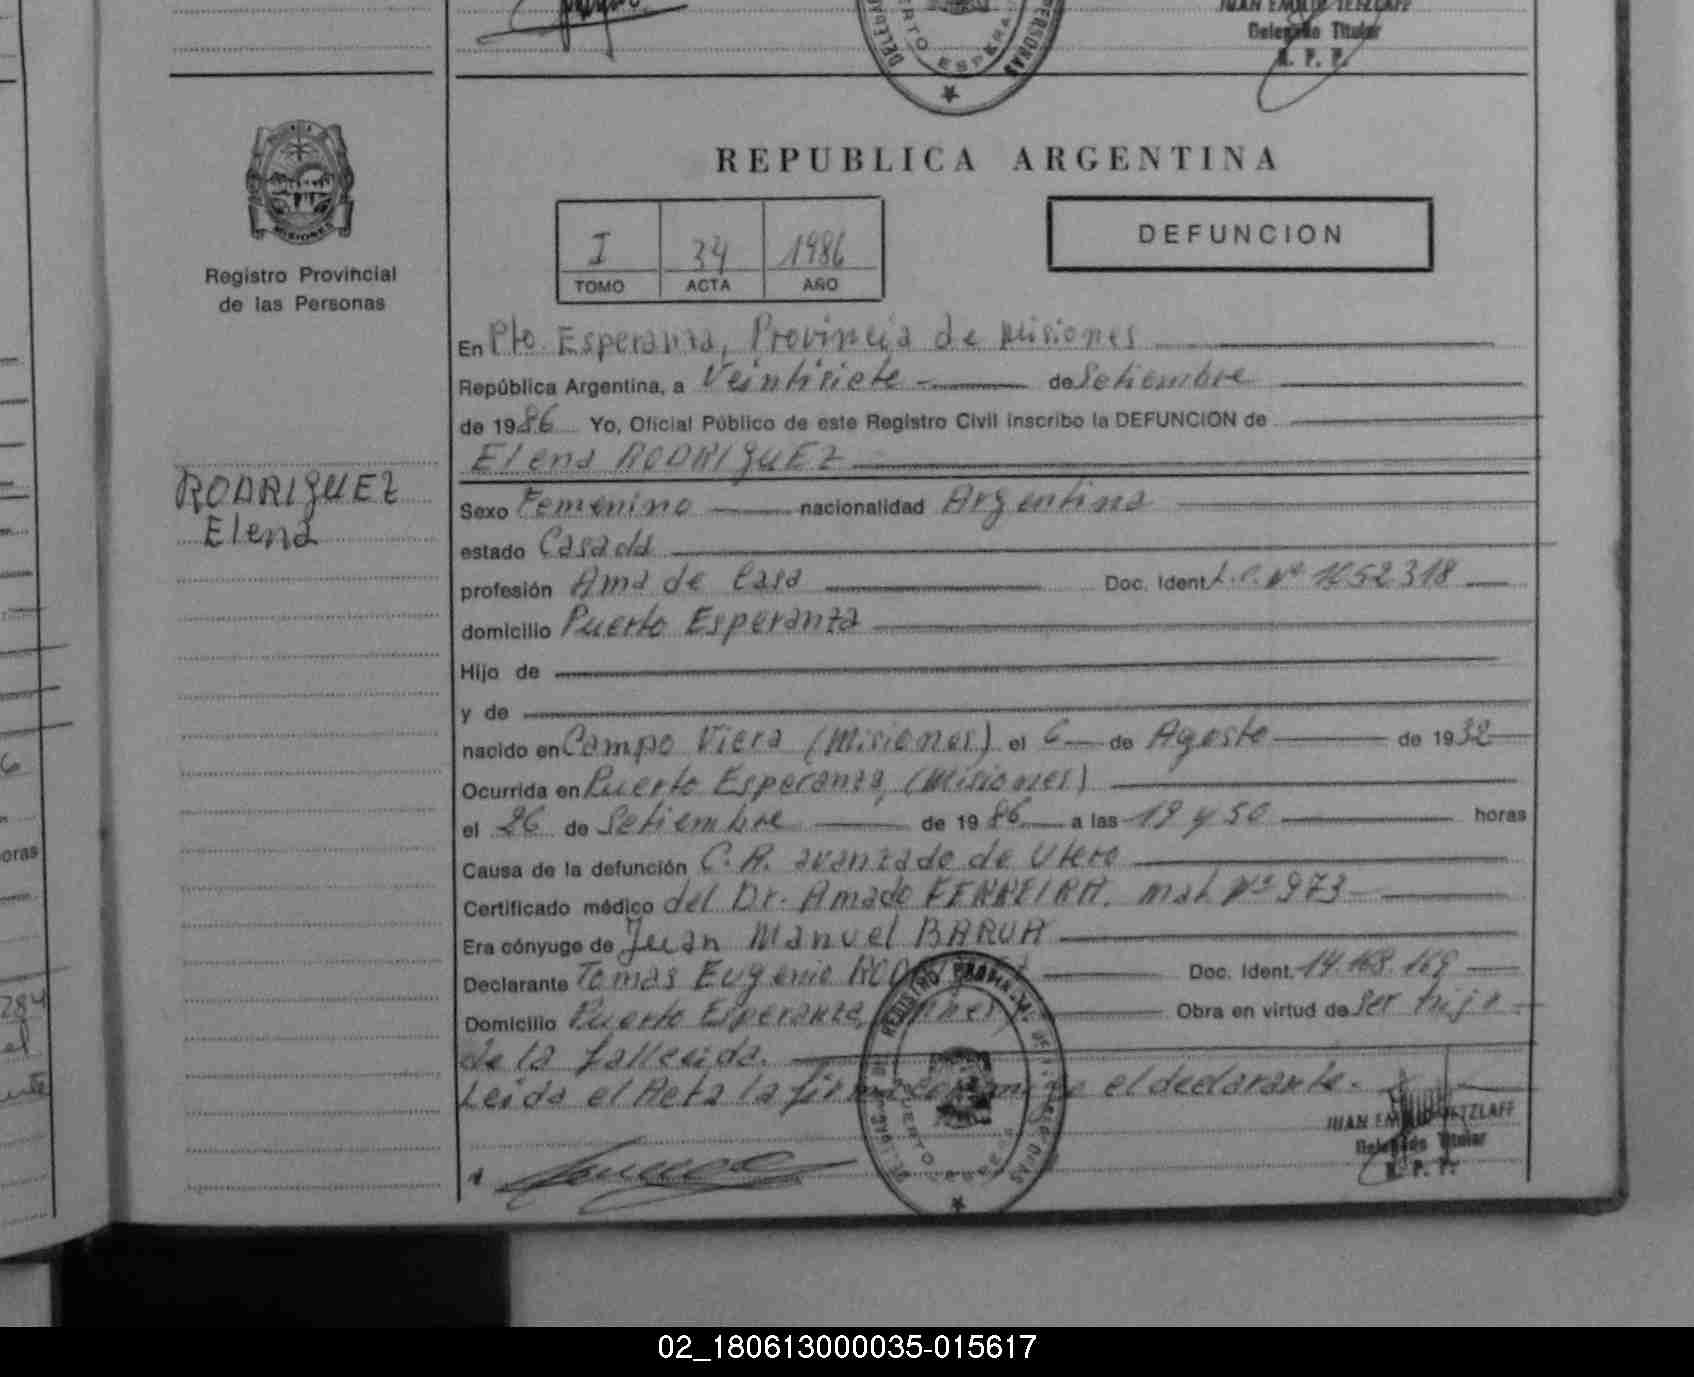 JUAN EMILIO TETZLAFF
Delegado Titular
R. P. P.
PUERTO ESPERA
REPUBLICA ARGENTINA
MISIONES
Registro Provincial
de las Personas
I 34 1986
TOMO ACTA AÑO
DEFUNCION
En Pto. Esperanza, Provincia de Misiones
República Argentina, a Veintisiete de Setiembre
de 1986 Yo, Oficial Público de este Registro Civil inscribo la DEFUNCION de
Elena RODRIGUEZ
RODRIGUEZ
Elena
Sexo Femenino nacionalidad Argentina
estado Casada
profesión Ama de Casa Doc. Ident. L.C. Nº 1652318
domicilio Puerto Esperanza
Hijo de
y de
nacido en Campo Viera (Misiones) el 6 de Agosto de 1932
Ocurrida en Puerto Esperanza, (Misiones)
el 26 de Setiembre de 1986 a las 19 y 50 horas
Causa de la defunción C.A. avanzado de Utero
Certificado médico del Dr. Amado FERREIRA. mat Nº 973
Era cónyuge de Juan Manuel BARUA
Declarante Tomas Eugenio Doc. Ident. 14.168.169
Domicilio Puerto Esperanza, Obra en virtud de Ser hijo
de la fallecida.
Leida el Acta la firma conmigo el declarante.
REGISTRO PROVINCIAL DE LAS PERSONAS
JUAN EMILIO TETZLAFF
Delegado Titular
R. P. P.
284
el
oras
6
02_180613000035-015617